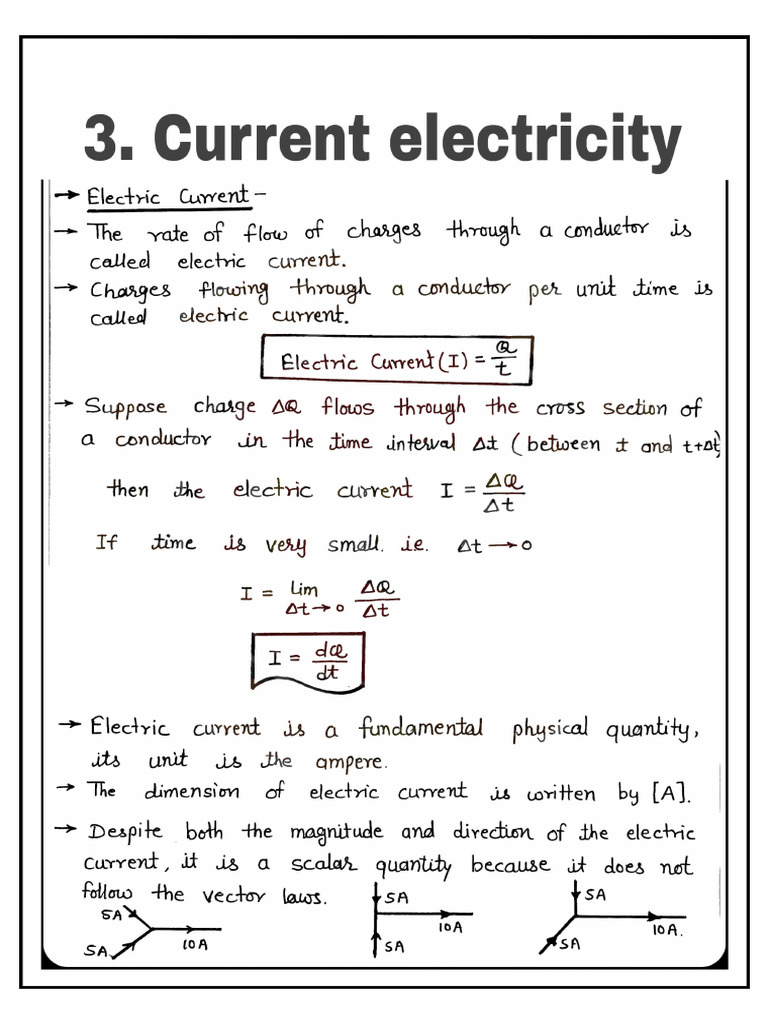 3. Current electricity
→ Electric Current –
→ The rate of flow of charges through a conductor is
called electric current.
→ Charges flowing through a conductor per unit time is
called electric current.
Electric Current (I) = Q/t
→ Suppose charge ΔQ flows through the cross section of
a conductor in the time interval Δt (between t and t+Δt)
then the electric current I = ΔQ/Δt
If time is very small. ie. Δt → 0
I = Lim Δt→0 ΔQ/Δt
I = dQ/dt
→ Electric current is a fundamental physical quantity,
its unit is the ampere.
→ The dimension of electric current is written by [A].
→ Despite both the magnitude and direction of the electric
current, it is a scalar quantity because it does not
follow the vector laws.
5A 5A 10A
5A 10A 5A
5A 10A. 5A